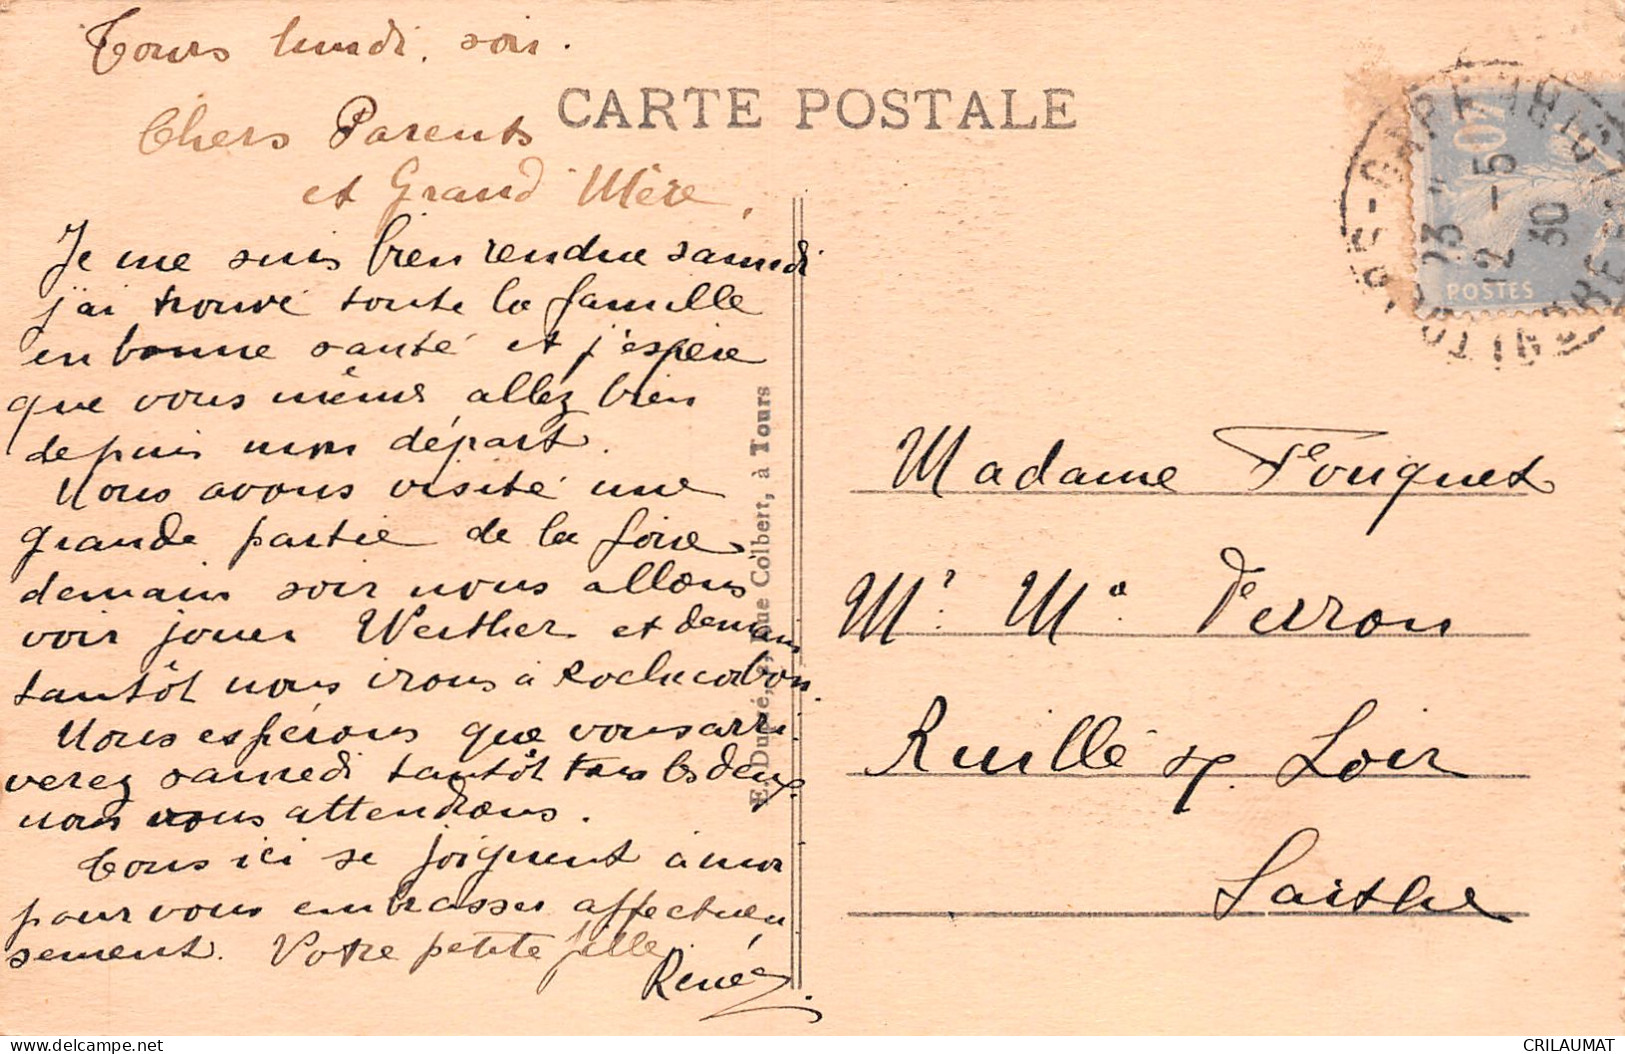 Tours lundi soir.
CARTE POSTALE
Chers Parents
et Grand Mère,
Je me suis bien rendue samedi
j'ai trouvé toute la famille
en bonne santé et j'espère
que vous même allez bien
depuis mon départ.
Nous avons visité une
grande partie de la foire
demain soir nous allons
voir jouer Werther et demain
tantôt nous irons à Rochecorbon.
Nous espérons que vous arri
verez samedi tantôt tous les deux
nous vous attendrons.
Tous ici se joignent à moi
pour vous embrasser affectueu
sement. Votre petite fille
Renée
E. Dupré, 2, Rue Colbert, à Tours
40
POSTES
TOURS-GARE
13
12-5
30
INDRE ET
Madame Fouquet
Mn Ma Perron
Ruillé s/ Loir
Sarthe
CRILAUMAT